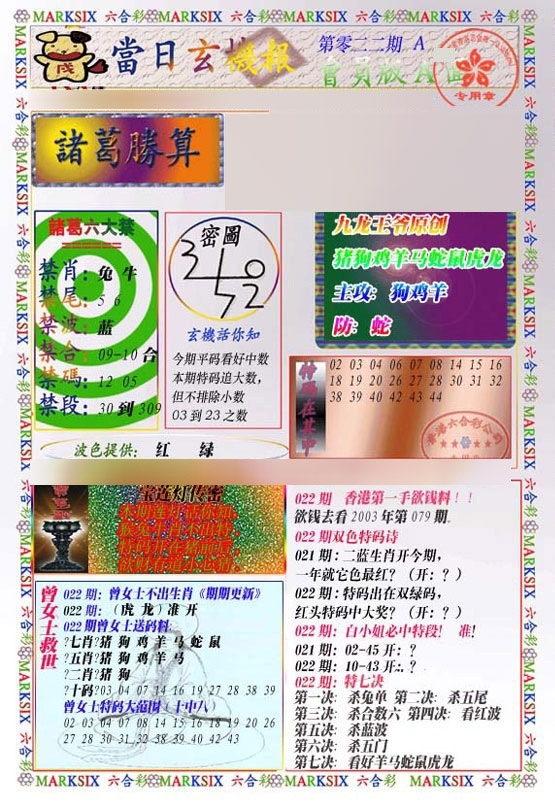 MARKSIX 六合彩 MARKSIX 六合彩 MARKSIX 六合彩 MARKSIX 六合彩
當日玄機報
第零二二期 A
會員版A
专用章
諸葛勝算
諸葛六大禁
禁肖: 兔 牛
禁尾: 5 6
禁波: 蓝
禁合: 09-10 合
禁碼: 12 05
禁段: 30 到 309
密圖
玄機話你知
今期平码看好中数
本期特码追大数,
但不排除小数
03 到 23 之数
波色提供: 红 绿
九龙王爷原创
猪狗鸡羊马蛇鼠虎龙
主攻: 狗鸡羊
防: 蛇
特碼在其中
02 03 04 06 07 08 14 15 16
18 19 20 26 27 28 30 31 32
38 39 40 42 43 44
宝莲灯传密
曾女士救世
022 期: 曾女士不出生肖《期期更新》
022 期: (虎 龙) 准 开
022 期曾女士送码料:
?七肖?猪 狗 鸡 羊 马 蛇 鼠
?五肖?猪 狗 鸡 羊 马
?二肖?猪 狗
?十码?03 04 07 14 16 19 27 28 38 39
曾女士特码大范围 (十中八)
02 03 04 07 08 14 15 16 18 19 20 26
27 28 30 31 32 38 39 40 42 43
022 期 香港第一手欲钱料!!
欲钱去看 2003 年第 079 期.
022 期双色特码诗
021 期: 二蓝生肖开今期,
一年就它色最红? (开: ? )
022 期: 特码出在双绿码,
红头特码中大奖? (开: ? )
022 期: 白小姐必中特段! 准!
021 期: 02-45 开: ?
022 期: 10-43 开: ?
022 期: 特七决
第一决: 杀兔单 第二决: 杀五尾
第三决: 杀合数六 第四决: 看红波
第五决: 杀蓝波
第六决: 杀五门
第七决: 看好羊马蛇鼠虎龙
MARKSIX 六合彩 MARKSIX 六合彩 MARKSIX 六合彩 MARKSIX 六合彩